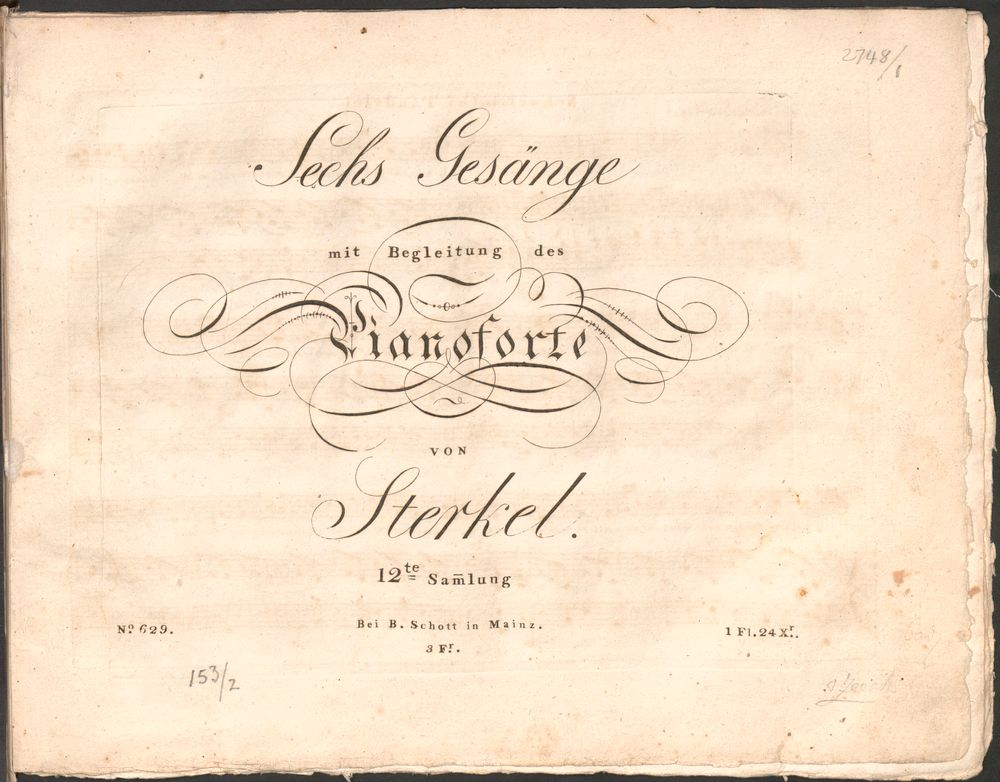 2748/1
Sechs Gesänge
mit Begleitung des
Pianoforte
VON
Sterkel.
12te Sam̅lung
Bei B. Schott in Mainz.
No 629.
1 Fl. 24 Xr.
3 Fr.
153/2